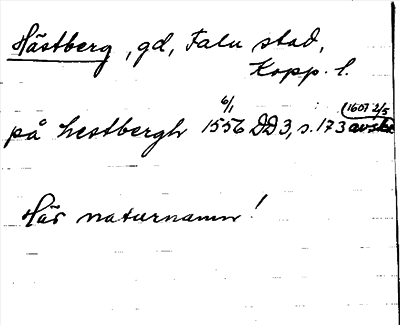 Hästberg, gd, Falu stad,
Kopp. l.
på hestbergh 6/1 1556 DD3, s. 173 (1607 2/5 avskr
Här naturnamn!